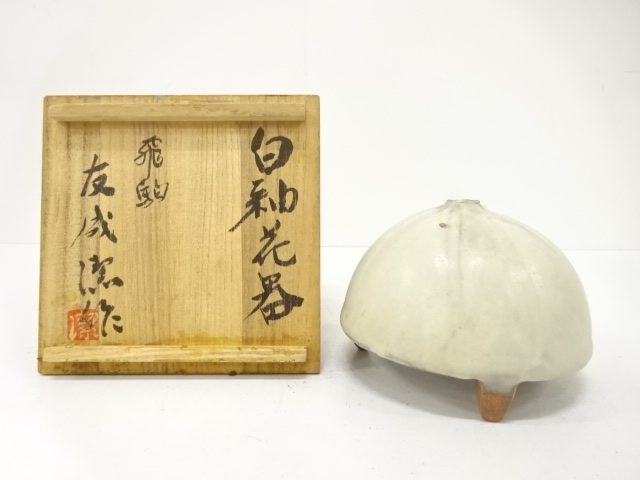 白釉花器
飛駒
友成潔作